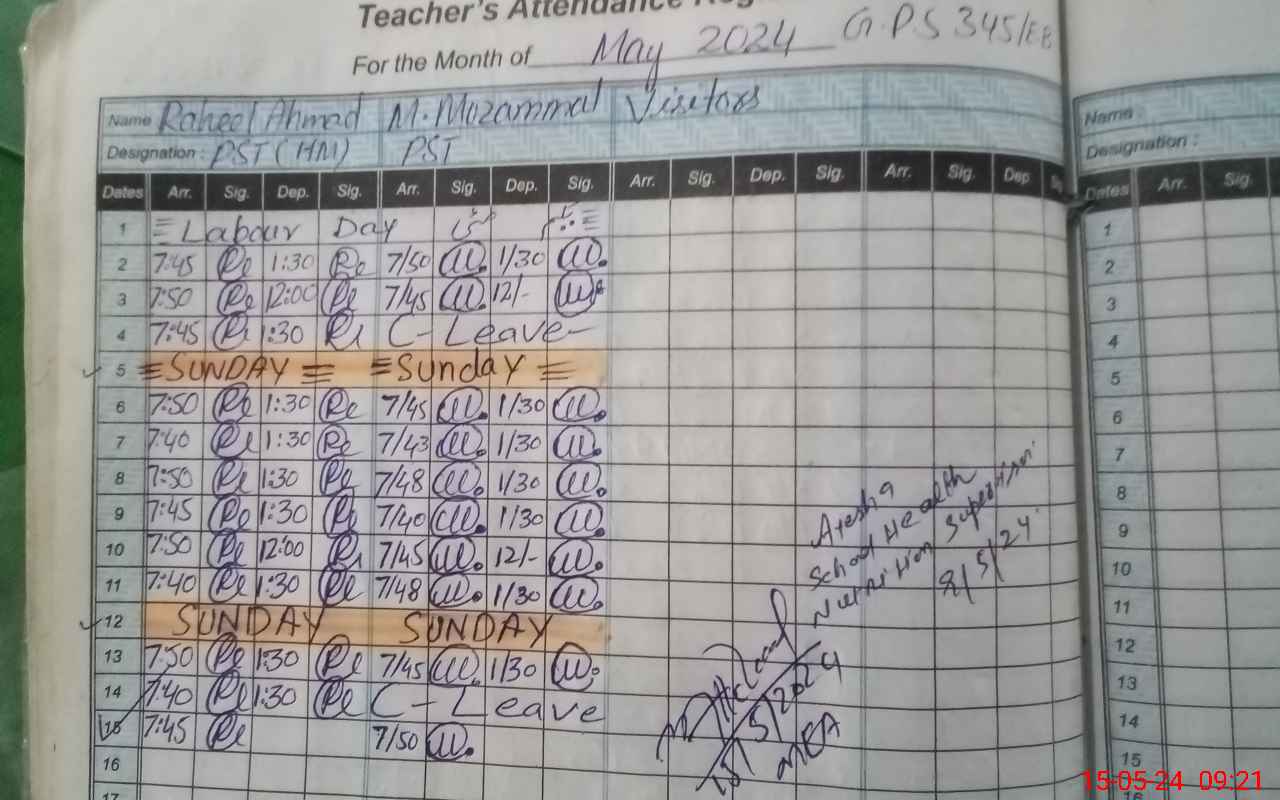 Teacher's Attendance
For the Month of May 2024 G.P.S 345/EB
Name Raheel Ahmad M. Mozammal Visitors
Designation : PST (HM) PST
Dates Arr. Sig. Dep. Sig. Arr. Sig. Dep. Sig. Arr. Sig. Dep. Sig. Arr. Sig. Dep
1 Labour Day
2 7:45 Re 1:30 Re 7/50 1/30
3 7:50 Re 12:00 Re 7/45 12/-
4 7:45 Re 1:30 Re C-Leave-
5 =SUNDAY= =Sunday=
6 7:50 Re 1:30 Re 7/45 1/30
7 7:40 Re 1:30 Re 7/43 1/30
8 7:50 Re 1:30 Re 7/48 1/30
9 7:45 Re 1:30 Re 7/40 1/30
10 7:50 Re 12:00 Re 7/45 12/-
11 7:40 Re 1:30 Re 7/48 1/30
12 SUNDAY SUNDAY
13 7:50 Re 1:30 Re 7/45 1/30
14 7:40 Re 1:30 Re C-Leave
15 7:45 Re 7/50
16
17
Ayesha
School Health
Nutrition Supervisor
8/5/24
15/5/2024
MEA
Name :
Designation :
Dates Arr. Sig.
1
2
3
4
5
6
7
8
9
10
11
12
13
14
15
16
15-05-24 09:21